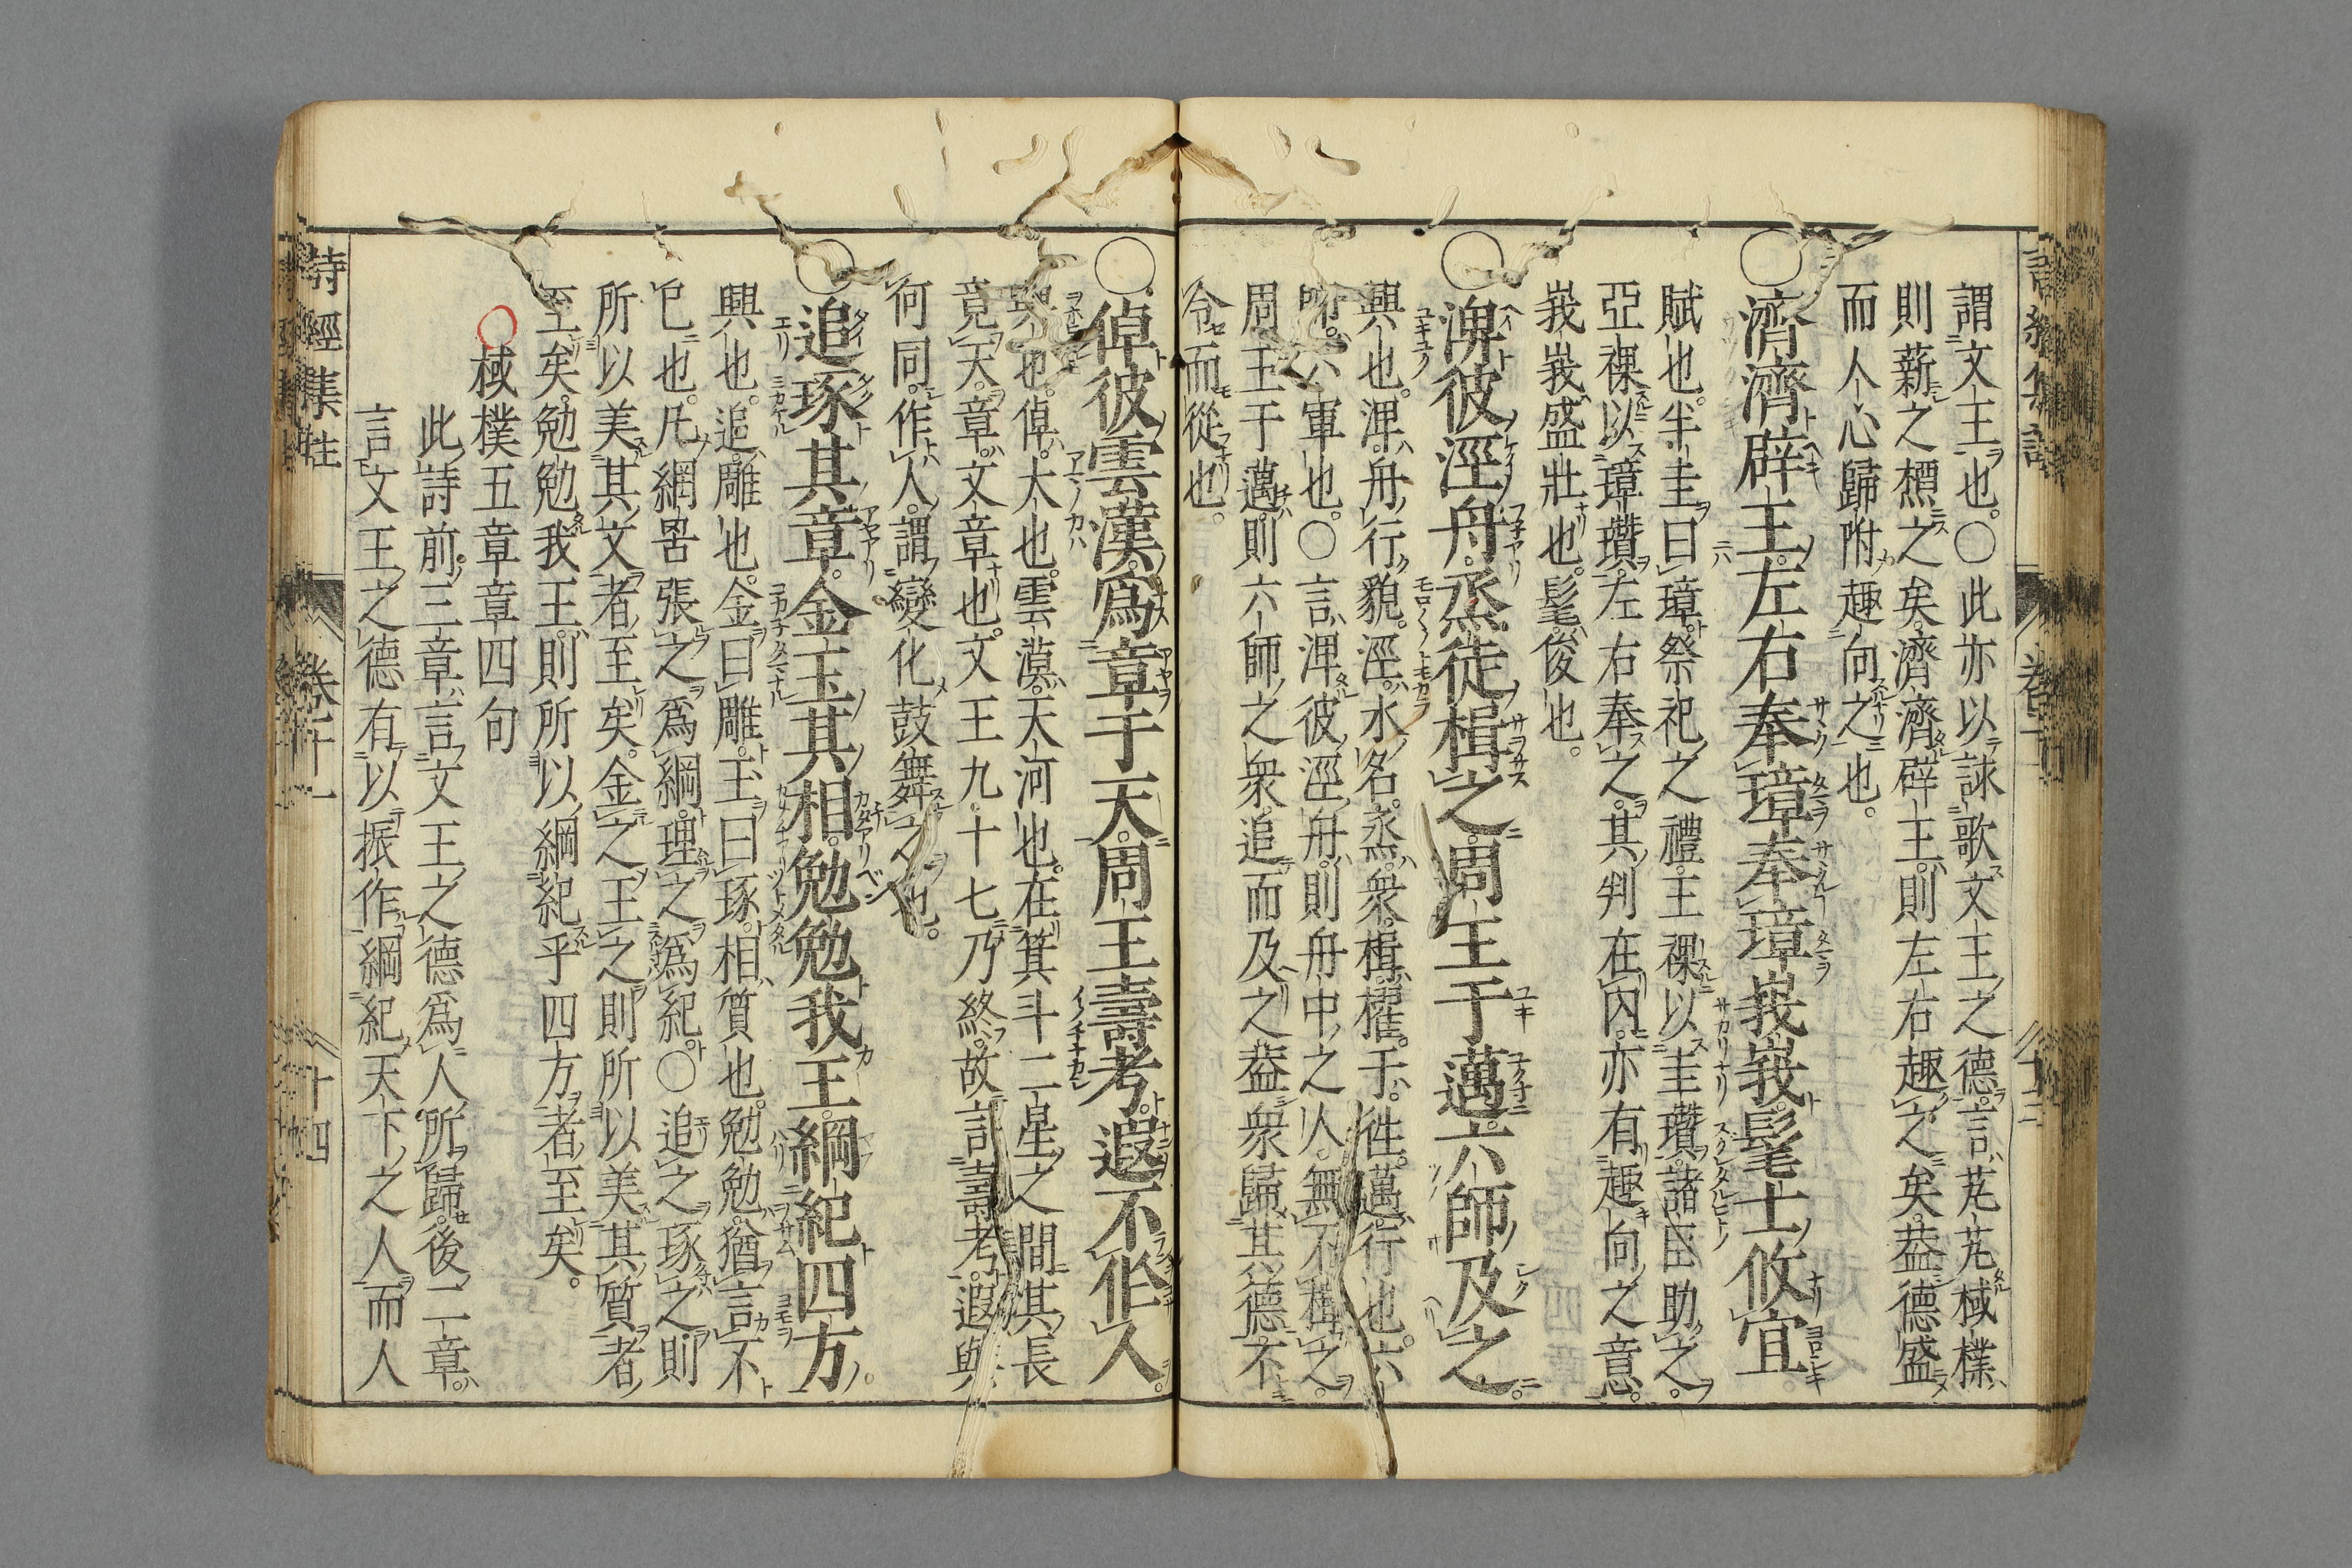 謂文王也。○此亦以詠歌文王之德言芃芃棫樸
則薪之槱之矣濟濟辟王則左右趣之矣葢德盛
而人心歸附趣向之也。
○濟濟辟王左右奉璋奉璋峩峩髦士攸宜
賦也。半圭曰璋祭祀之禮王祼以圭瓚諸臣助之。
亞祼以璋瓚左右奉之其判在內亦有趣向之意。
峩峩盛壯也髦俊也。
○淠彼涇舟烝徒楫之周王于邁六師及之
興也。淠舟行貌。涇水名。烝衆楫櫂于往邁行也。六
師六軍也。○言淠彼涇舟則舟中之人無不楫之。
周王于邁則六師之衆追而及之葢衆歸其德不
令而從也。
○倬彼雲漢爲章于天周王壽考遐不作人
興也。倬大也。雲漢天河也。在箕斗二星之間其長
竟天章文章也。文王九十七乃終故言壽考遐與
何同。作人謂變化鼓舞之也。
○追琢其章金玉其相勉勉我王綱紀四方
興也。追雕也。金曰雕玉曰琢相質也。勉勉猶言不
已也。凡網罟張之爲綱理之爲紀○追之琢之則
所以美其文者至矣。金之玉之則所以美其質者
至矣。勉勉我王則所以綱紀乎四方者至矣。
○棫樸五章章四句
此詩前三章言文王之德爲人所歸後二章
言文王之德有以振作綱紀天下之人而人
詩經集註 卷三十一 十四